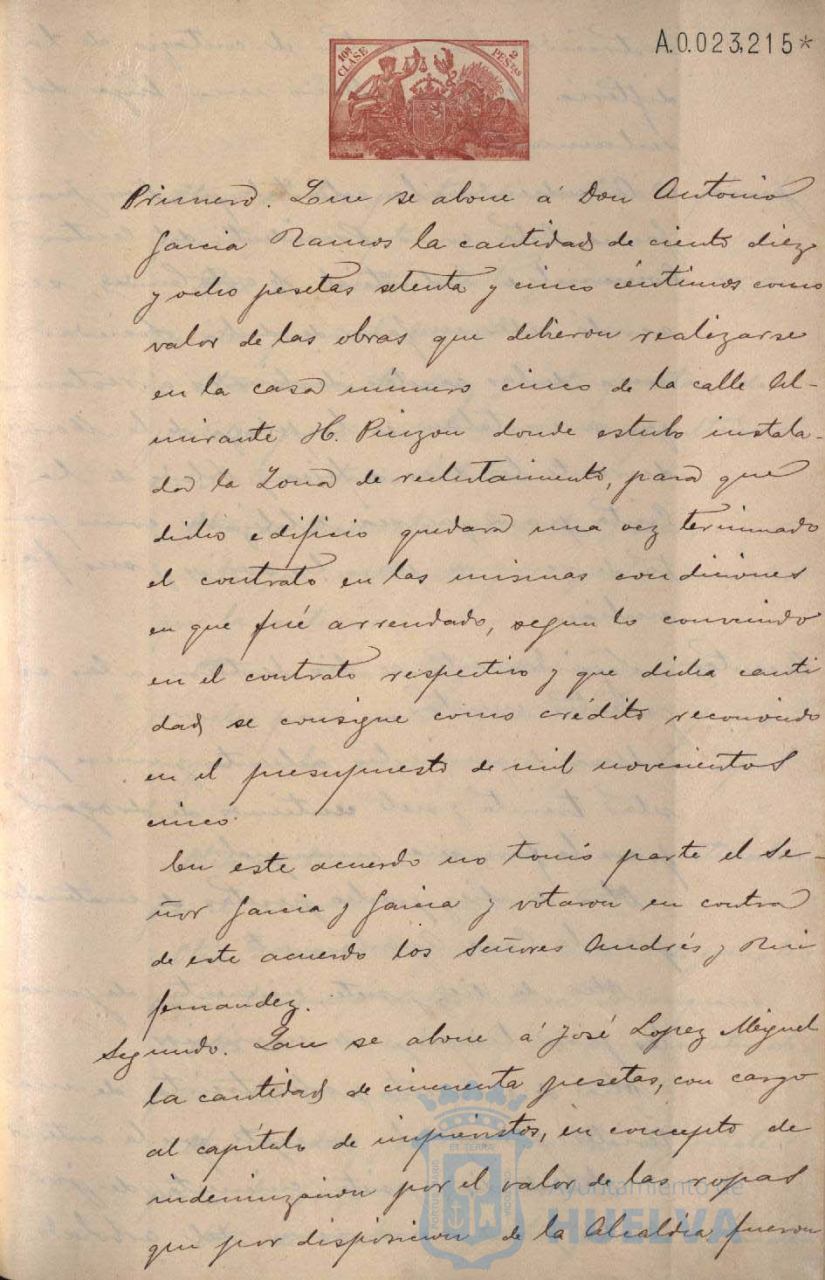 A.0.023,215*
10ª CLASE
2 PESTAS
Primero. Que se abone á Don Antonio
Garcia Ramos la cantidad de ciento diez
y ocho pesetas setenta y cinco céntimos como
valor de las obras que debieron realizarse
en la casa número cinco de la calle Al-
mirante H. Pinzon donde estubo instala-
da la Zona de reclutamiento, para que
dicho edificio quedara una vez terminado
el contrato en las mismas condiciones
en que fué arrendado, segun lo convenido
en el contrato respectivo y que dicha canti
dad se consigne como crédito reconocido
en el presupuesto de mil novecientos
cinco.
En este acuerdo no tomó parte el Se-
ñor Garcia y Garcia y votaron en contra
de este acuerdo los Señores Andrés y
fernandez.
Segundo. Que se abone á José Lopez Miguel
la cantidad de cincuenta pesetas, con cargo
al capítulo de imprevistos, en concepto de
indemnizacion por el valor de las ropas
que por disposicion de la Alcaldia fueron
Ayuntamiento de
HUELVA